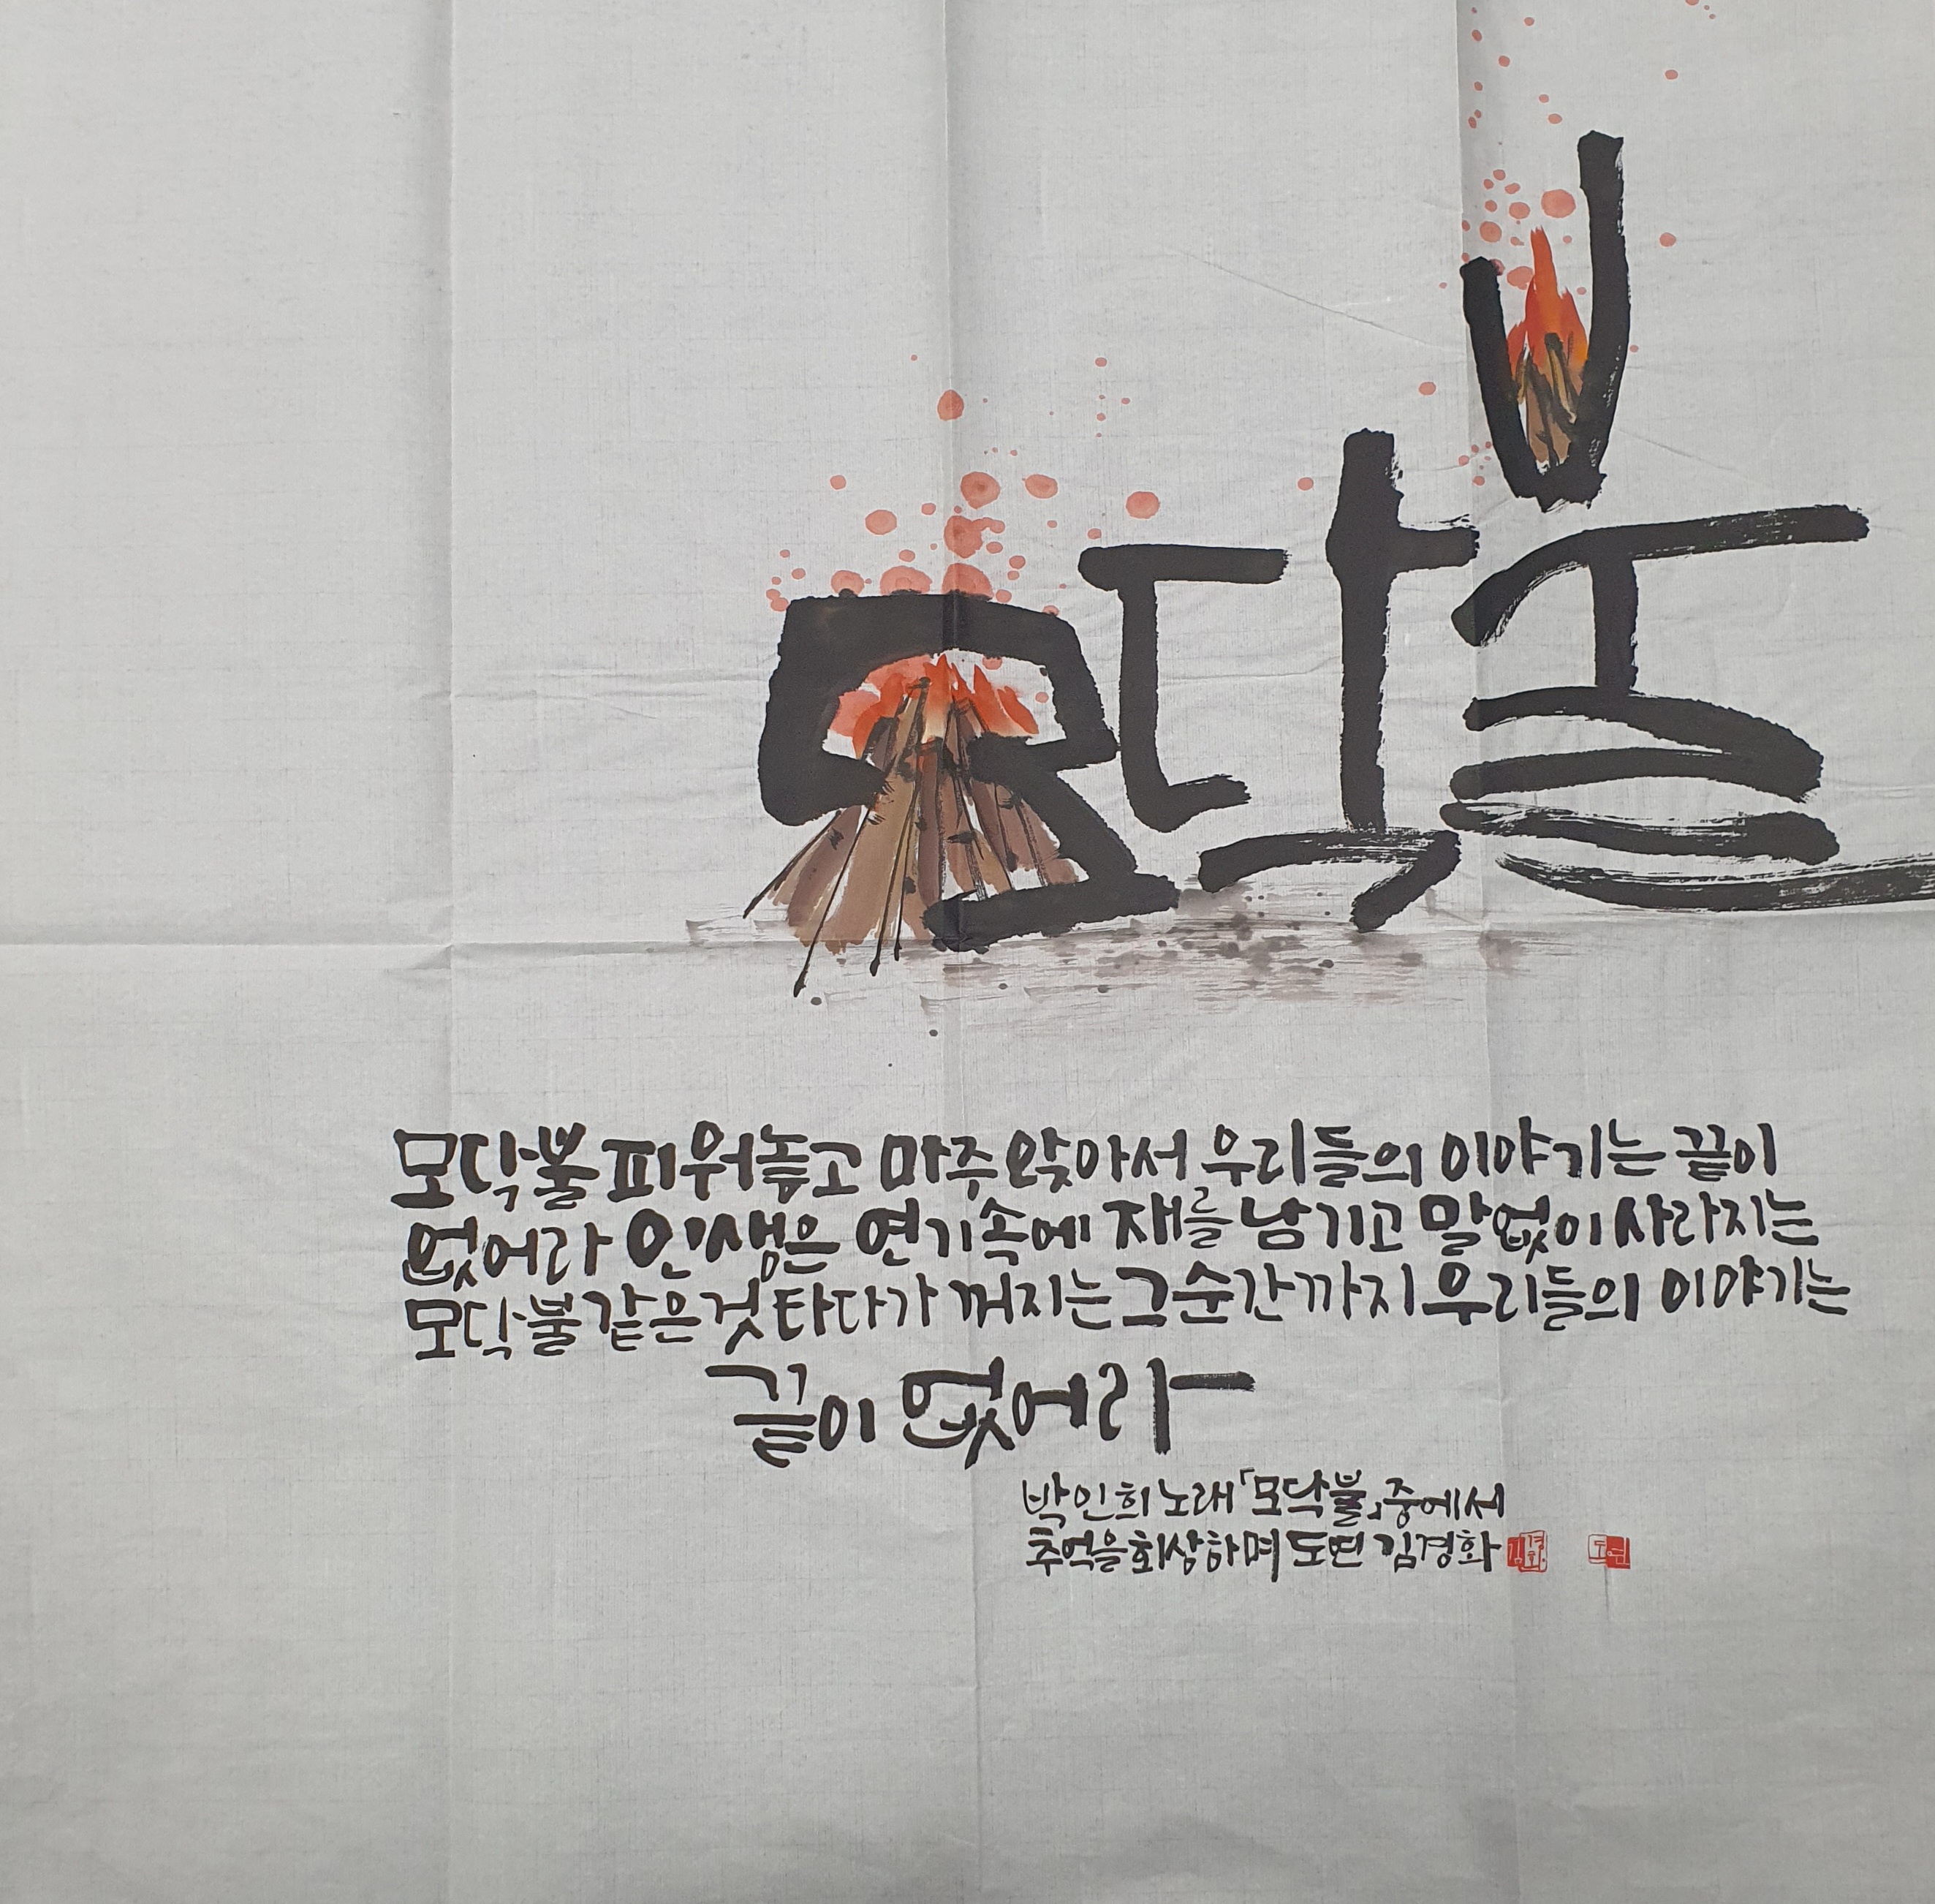 모닥불
모닥불 피워놓고 마주앉아서 우리들의 이야기는 끝이
없어라 인생은 연기속에 재를 남기고 말없이 사라지는
모닥불 같은 것 타다가 꺼지는 그 순간까지 우리들의 이야기는
끝이 없어라
박인희 노래 「모닥불」 중에서
추억을 회상하며 도연 김경화